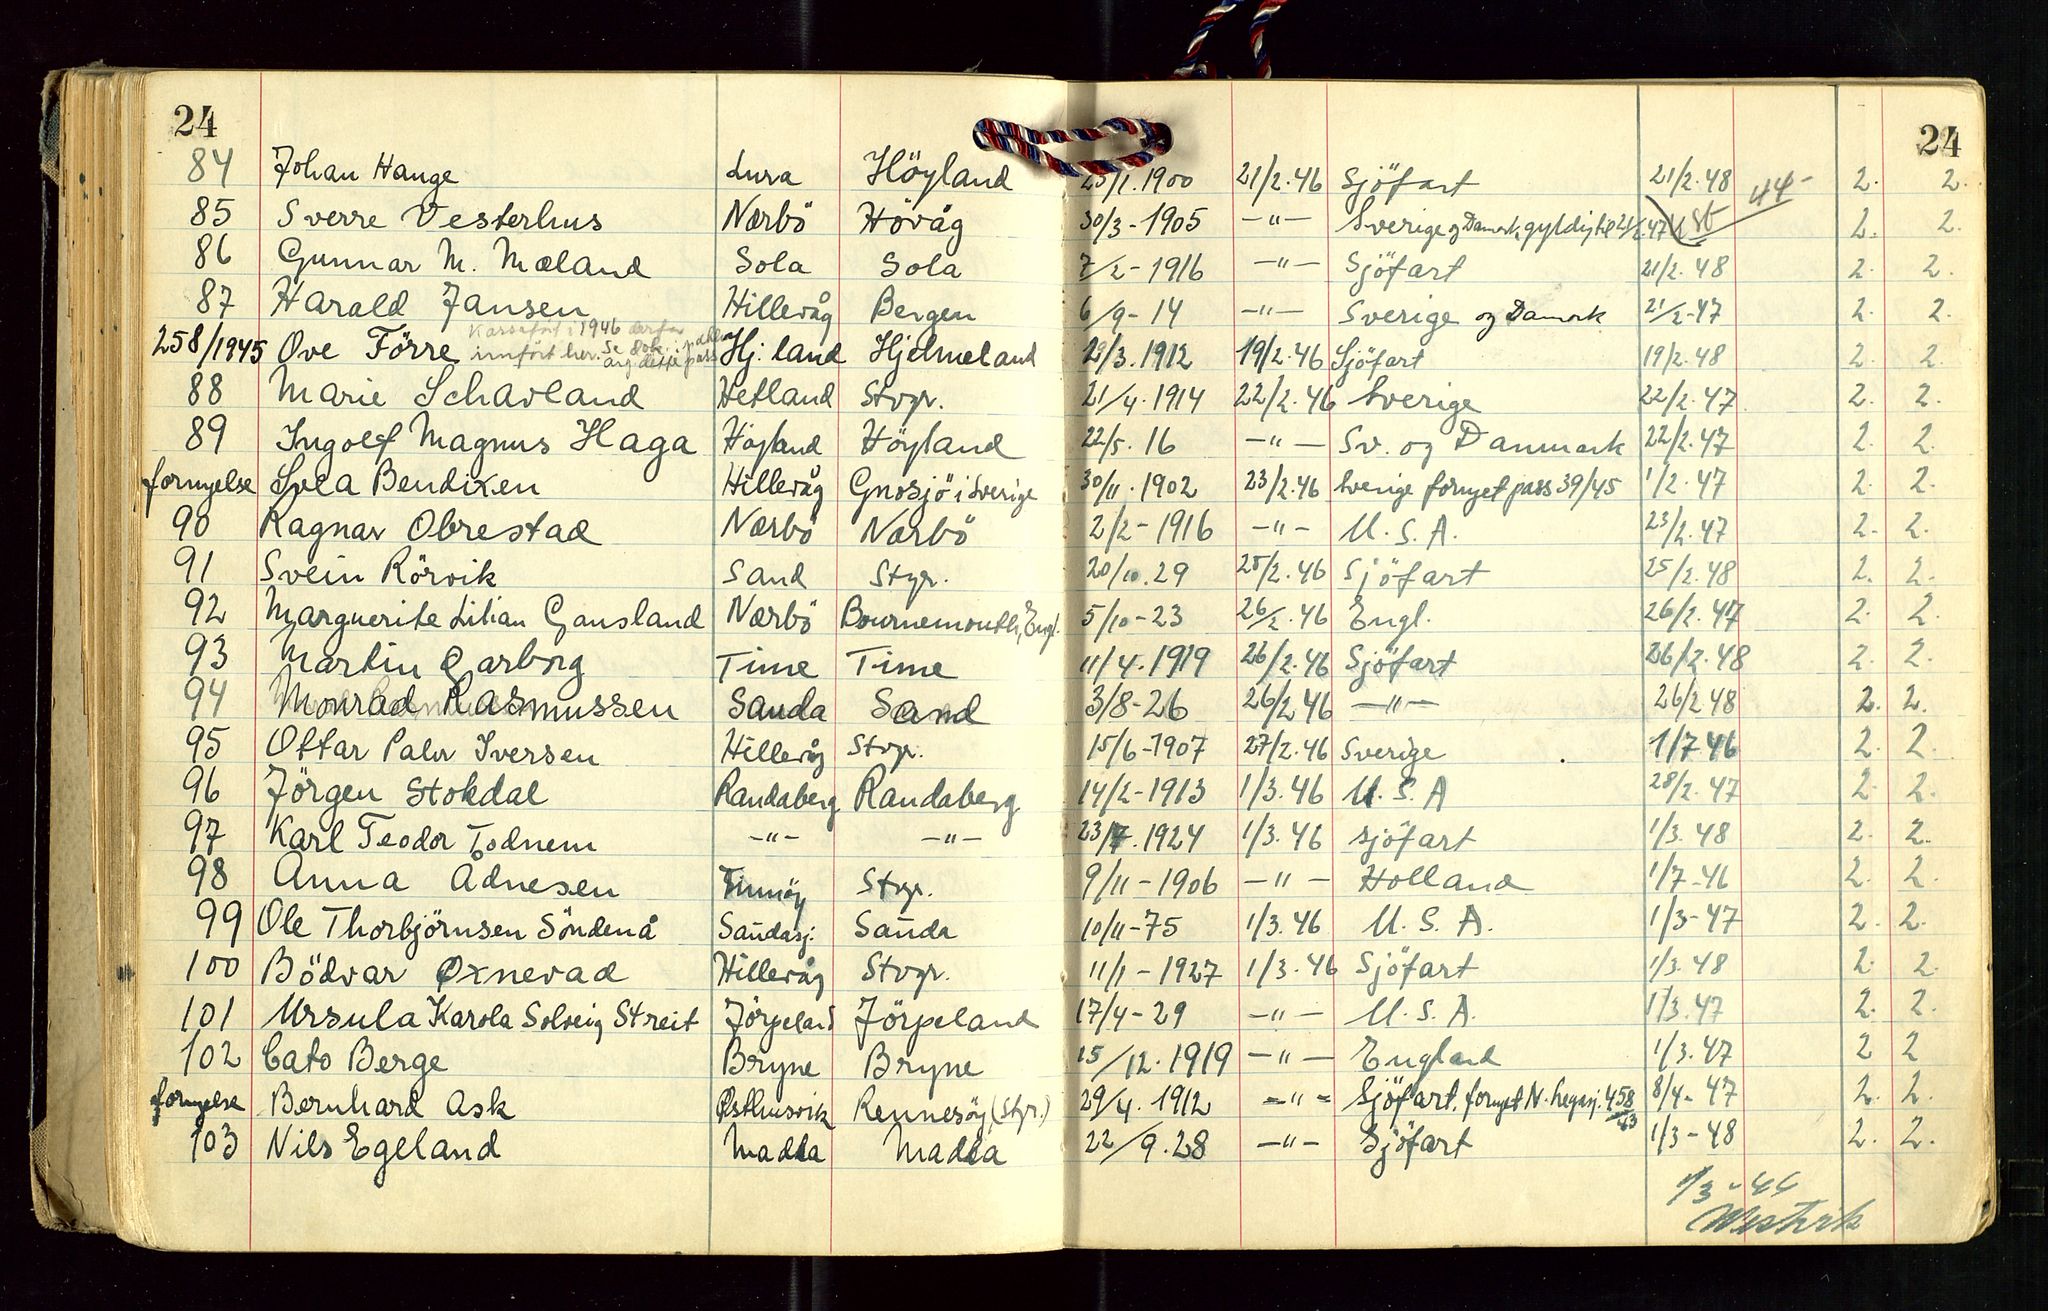 24 24
84 Johan Hauge Lura Höyland 25/1.1900 21/2.46 Sjöfart 21/2.48 44- 2. 2.
85 Sverre Vesterhus Nærbö Hövåg 30/3-1905 -"- Sverige og Danmark, gyldig til 21/2.47 2. 2.
86 Gunnar M. Mæland Sola Sola 7/2-1916 -"- Sjöfart 21/2.48 2. 2.
87 Harald Jansen Hillevåg Bergen 6/9-14 -"- Sverige og Danmark 21/2-47 2. 2.
Karsaført i 1946 derfor
258/1945 Ove Förre innført her. Se Hj:land Hjelmeland 29/3.1912 19/2.46 Sjöfart 19/2.48 2. 2.
88 Marie Schavland Hetland Stvgr. 21/4.1914 22/2.46 Sverige 22/2.47 2. 2.
89 Ingolf Magnus Haga Höyland Höyland 22/5.16 -"- Sv. og Danmark 22/2.47 2. 2.
fornyelse Svea Bendixen Hillevåg Gnosjö i Sverige 30/11.1902 23/2.46 Sverige fornyet pass 39/45 1/2.47 2. 2.
90 Ragnar Obrestad Nærbö Nærbö 2/2-1916 -"- U.S.A. 23/2.47 2. 2.
91 Svein Rörvik Sand Stvgr. 20/10.29 25/2.46 Sjöfart 25/2.48 2. 2.
92 Marguerite Lilian Gausland Nærbö Bournemouth, Engl. 5/10-23 26/2.46 Engl. 26/2.47 2. 2.
93 Martin Garborg Time Time 11/4.1919 26/2.46 Sjöfart 26/2.48 2. 2.
94 Monrad Rasmussen Sauda Sand 3/8-26 26/2 46 -"- 26/2 48 2. 2.
95 Ottar Palm Iversen Hillevåg Stvgr. 15/6-1907 27/2.46 Sverige 1/7 46 2. 2.
96 Jörgen Stokdal Randaberg Randaberg 14/2-1913 1/3.46 U.S.A 28/2.47 2. 2.
97 Karl Teodor Todnem -"- -"- 23/7.1924 1/3.46 sjöfart 1/3.48 2. 2.
98 Anna Ådnesen Finnöy Stvgr. 9/11-1906 -"- Holland 1/7-46 2. 2.
99 Ole Thorbjörnsen Söndenå Saudasj. Sauda 10/11-75 1/3.46 U.S.A. 1/3-47 2. 2.
100 Bödvar Øxnevad Hillevåg Stvgr. 11/1-1927 1/3.46 Sjöfart 1/3.48 2. 2.
101 Ursula Karola Solveig Streit Jörpeland Jörpeland 17/4-29 -"- U.S.A. 1/3.47 2. 2.
102 Cato Berge Bryne Bryne 15/12.1919 -"- England 1/3.47 2 2
fornyelse Bernhard Ask Østhusvik Rennesöy, (Stgr.) 29/4.1912 -"- Sjöfart, fornyet N-hegssj. 458/43 8/4-47 2. 2.
103 Nils Egeland Madla Madla 22/9.28 -"- Sjöfart 1/3-48 2. 2.
1/3-46